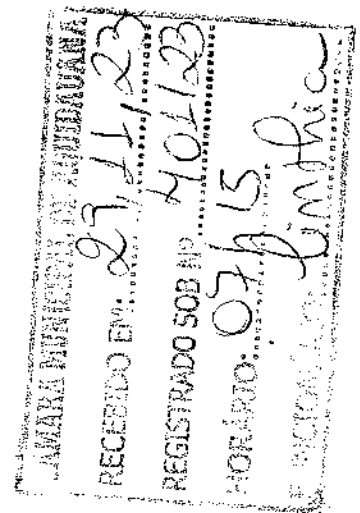 CAMARA MUNICIPAL DE AQUIDAUANA
RECEBIDO EM: 29/11/23
REGISTRADO SOB Nº 401/23
HORÁRIO: 07 15
FUNCIONÁRIO: